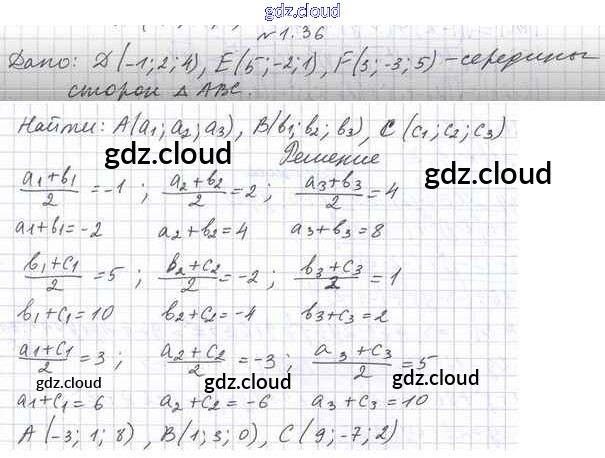 gdz.cloud
№1.36
Дано: D(-1; 2; 4), E(5; -2; 1), F(3; -3; 5) - середины
сторон △ ABC.
Найти: A(a₁; a₂; a₃), B(b₁; b₂; b₃), C(c₁; c₂; c₃)
Решение
gdz.cloud gdz.cloud
(a₁+b₁)/2 = -1; (a₂+b₂)/2 = 2; (a₃+b₃)/2 = 4
a₁+b₁=-2 a₂+b₂=4 a₃+b₃=8
(b₁+c₁)/2 = 5; (b₂+c₂)/2 = -2; (b₃+c₃)/2 = 1
b₁+c₁=10 b₂+c₂=-4 b₃+c₃=2
(a₁+c₁)/2 = 3; (a₂+c₂)/2 = -3; (a₃+c₃)/2 = 5
gdz.cloud gdz.cloud
a₁+c₁=6 a₂+c₂=-6 a₃+c₃=10
A(-3; 1; 8), B(1; 3; 0), C(9; -7; 2)
gdz.cloud